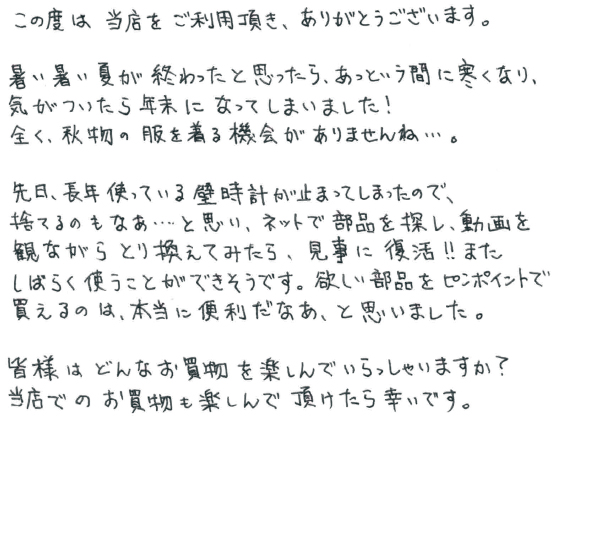 この度は当店をご利用頂き、ありがとうございます。
暑い暑い夏が終わったと思ったら、あっという間に寒くなり、
気がついたら年末になってしまいました!
全く、秋物の服を着る機会がありませんね…。
先日、長年使っている壁時計が止まってしまったので、
捨てるのもなあ…と思い、ネットで部品を探し、動画を
観ながらとり換えてみたら、見事に復活!!また
しばらく使うことができそうです。欲しい部品をピンポイントで
買えるのは、本当に便利だなあ、と思いました。
皆様はどんなお買物を楽しんでいらっしゃいますか?
当店でのお買物も楽しんで頂けたら幸いです。